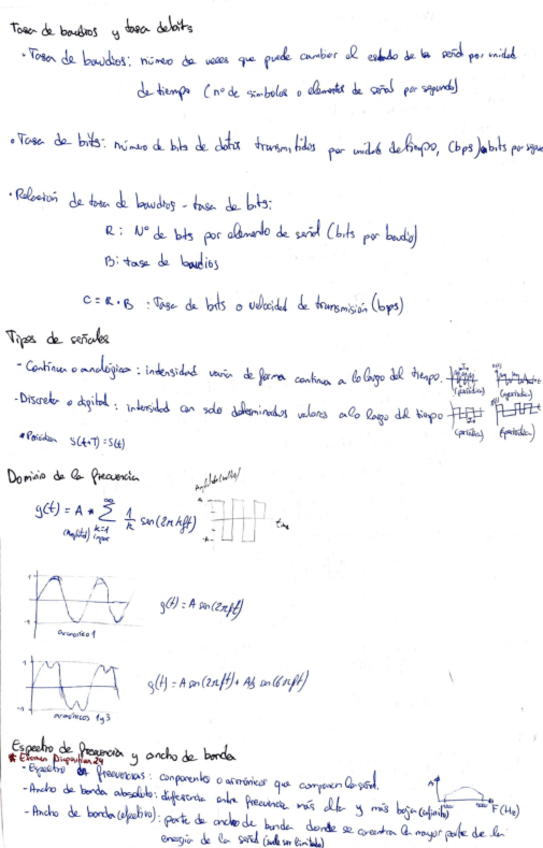 Tasa de baudios y tasa de bits
· Tasa de baudios: número de veces que puede cambiar el estado de la señal por unidad
de tiempo (nº de símbolos o elementos de señal por segundo)
· Tasa de bits: número de bits de datos transmitidos por unidad de tiempo, (bps) bits por segu
· Relación de tasa de baudios - tasa de bits:
R: Nº de bits por elemento de señal (bits por baudio)
B: tasa de baudios
C = R · B : Tasa de bits o velocidad de transmisión (bps)
Tipos de señales
- Continua o analógica: intensidad varía de forma continua a lo largo del tiempo.
(periódica) (aperiódica)
- Discreta o digital: intensidad con solo determinados valores a lo largo del tiempo
(periódica) (aperiódica)
* Periódica S(t+T) = S(t)
Dominio de la frecuencia
g(t) = A * ∑ 1/k sen(2πkft)
∞
k=1
(Amplitud) impar
time
g(t) = A sen(2πft)
armónico 1
g(t) = A sen(2πft) + A/3 sen(6πft)
armónicos 1 y 3
Espectro de frecuencia y ancho de banda
* Examen Diapositiva 24
- Espectro de frecuencias: componentes o armónicos que componen la señal.
- Ancho de banda absoluto: diferencia entre frecuencia más alta y más baja (infinito)
A F(Hz)
- Ancho de banda (efectivo): parte de ancho de banda donde se concentra la mayor parte de la
energía de la señal